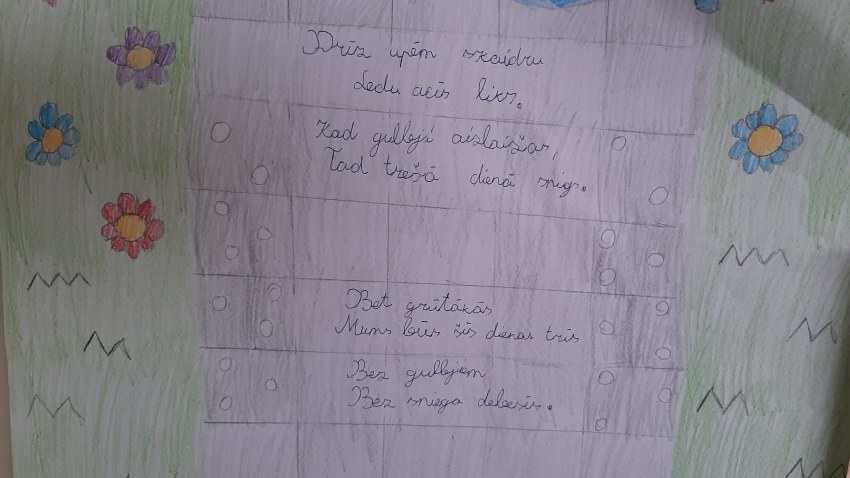 Drīz upēm skaidru
Ledu acīs liks.
Kad gulbji aizlaižas,
Tad trešā dienā snigs.
Bet grūtākās
Mums būs šīs dienas trīs
Bez gulbjiem
Bez sniega debesīs.